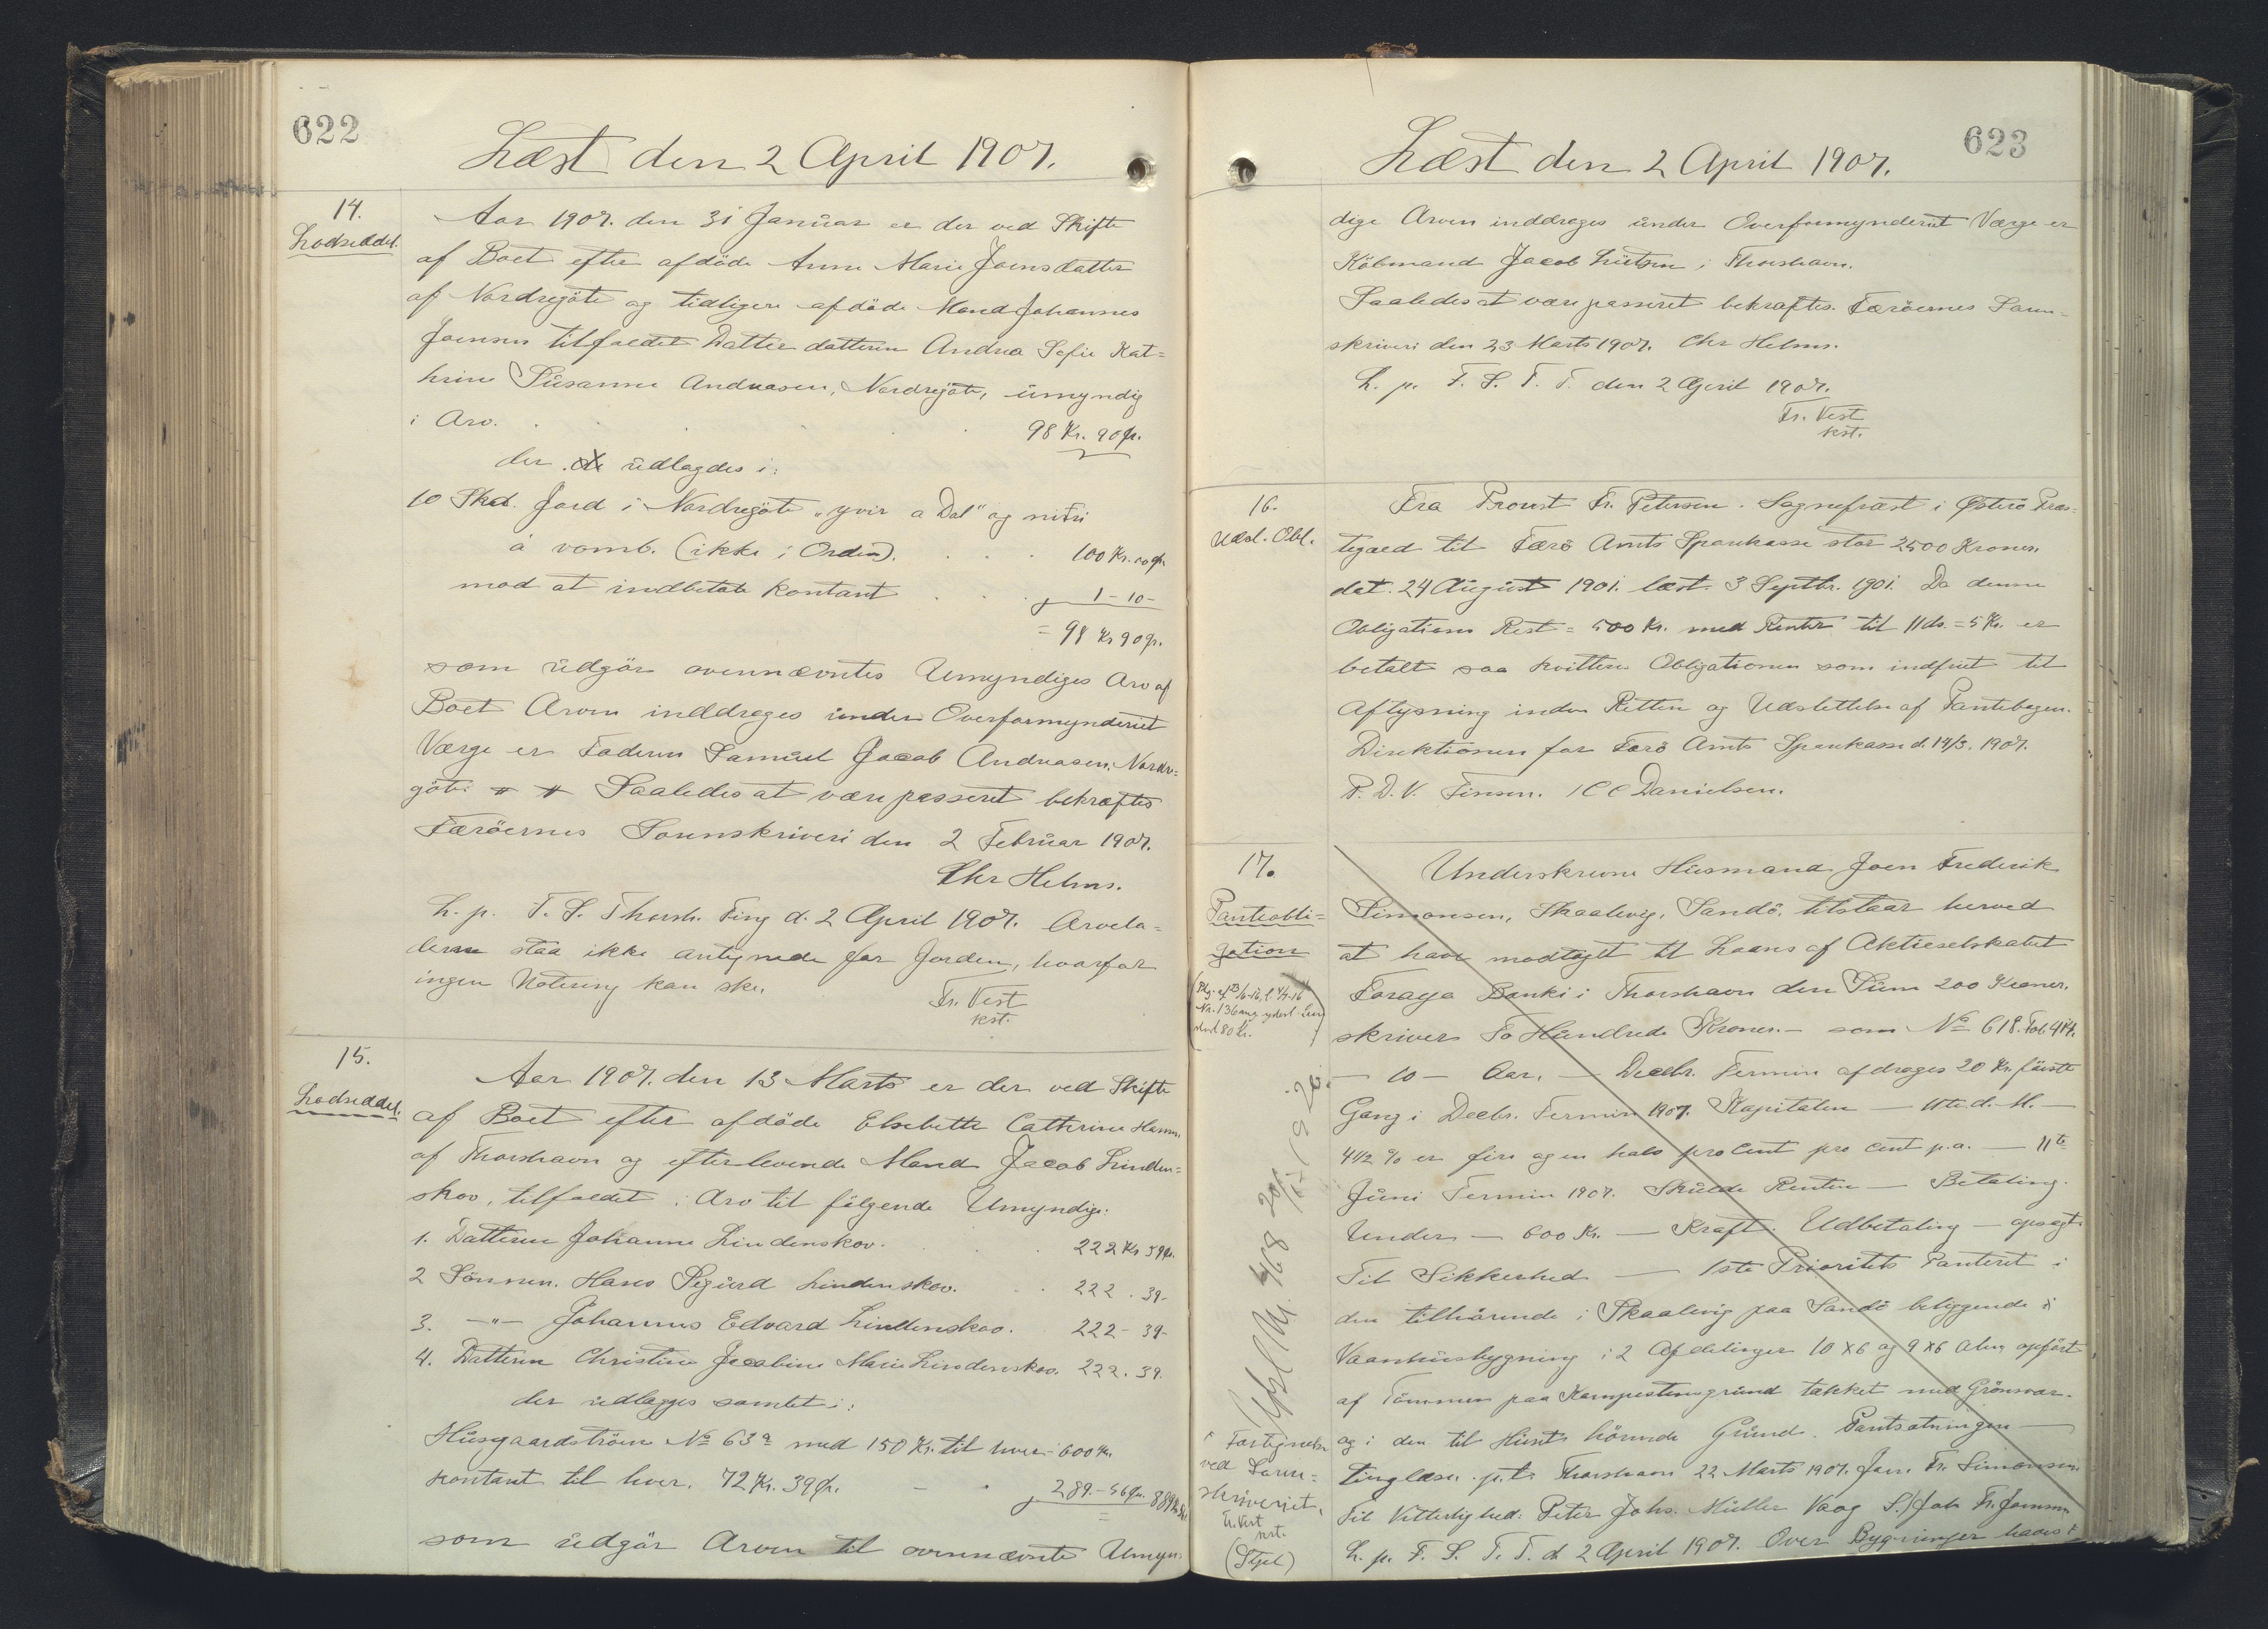 622
Læst den 2 April 1907.
14.
Lodseddel.
Aar 1907. den 31 Januar er der ved Skifte
af Boet efter afdöde Anne Marie Joensdatter
af Nordregöte og tidligere afdöde Mand Johannes
Joensen tilfaldet Datter datteren Andrea Sofie Kat=
hrine Susanne Andreasen, Nordregöte, umyndig
i Arv. 98 Kr. 90 Ør.
der udlagdes i:
10 Skd. Jord i Nordregöte "yvir a Dal" og nitri
á vomb. (ikke i Orden). 100 Kr. 00 Ør.
mod at indbetale kontant 1 - 10 -
= 98 Kr 90 Ør.
som udgör ovennævntes Umyndiges Arv af
Boet Arven inddrages under Overformynderiet
Værge er Faderen Samuel Jacob Andreasen, Nordre=
göte. Saaledes at være passeret bekræftes
Færöernes Sorenskriveri den 2 Februar 1907.
Chr Helms.
L. p. F. S. Thorsh. Ting d. 2 April 1907. Arvela=
derne staa ikke antegnede for Jorden, hvorfor
ingen Notering kan ske.
Fr. Vest
kst.
15.
Lodseddel.
Aar 1907. den 13 Marts er der ved Skifte
af Boet efter afdöde Elsebette Cathrine Hansen
af Thorshavn og efterlevende Mand Jacob Linden=
skov, tilfaldet i Arv til fölgende Umyndige:
1. Datteren Johanne Lindenskov. 222 Kr 39 Ør.
2 Sönnen. Hans Sigurd Lindenskov. 222 . 39 -
3. -"- Johannes Edvard Lindenskov. 222 - 39 -
4. Datteren Christine Jacobine Marie Lindenskov. 222 . 39.
der udlægges samlet i:
Husgaardström No 63a med 150 Kr. til hver 600 Kr.
kontant til hver. 72 Kr. 39 Ør. 289. - 56 Ør. 889 Kr
som udgör Arven til ovennævnte Umyn=
623
Læst den 2 April 1907.
dige Arven inddrages under Overformynderiet Værge er
Köbmand Jacob Lützen i Thorshavn.
Saaledes at være passeret bekræftes. Færöernes Soren=
skriveri den 23 Marts 1907. Chr Helms.
L. p. F. S. T. T. den 2 April 1907.
Fr. Vest
kst.
16.
Udsl. Obl.
Fra Provst Fr. Petersen. Sognepræst i Østerö Præs=
tegaed til Færö Amts Sparekasse stor 2500 Kroner.
dat. 24 August 1901. læst. 3 Septbr. 1901. Da denne
Obligations Rest = 500 Kr. med Renter til 11 ds. = 5 Kr. er
betalt saa kvitteres Obligationen som indfriet til
Aflysning inden Retten og Udslettelse af Pantebogen.
Direktionen for Færö Amts Sparekasse d. 14/3. 1907.
P. D. V. Finsen. I C C Danielsen.
17.
Panteobli=
gation
Underskrevne Husmand Joen Frederik
Simonsen, Skaalevig, Sandö, tilstaar herved
at have modtaget til Laans af Aktieselskabet
Foroya Banki i Thorshavn den Sum 200 Kroner.
skriver To Hundrede Kroner. - som No 618. Fol. 414.
- 10 - Aar. - Decbr. Termin afdrages 20 Kr. förste
Gang i Decbr. Termin 1907. Kapitalen - 11te d. M. -
4 1/2 % er fire og en halv pro Cent pro cent p.a. - 11te
Juni Termin 1907. Skulde Renten - Betaling.
Under - 600 Kr. - Kraft. Udbetaling - opsagt
Til Sikkerhed - 1ste Prioritets Panteret i
den tilhörende i Skaalevig paa Sandö beliggende
Vaanhusbygning i 2 Afdelinger 10 x 6 og 9 x 6 Alen opfört
af Tömmer paa Kampestensgrund takket med Grönsvær.
og i den til Huset hörende Grund. Pantsætningen -
tinglæses. p.t. Thorshavn 22 Marts 1907. Joen Fr. Simonsen
Til Vitterlighed: Peter Johs. Müller Vaag S./Joh Fr. Joensen
L. p. F. S. T. T. d. 2 April 1907. Over Bygninger haves
Fortegnelse
ved Soren=
skriveriet,
Fr. Vest
kst.